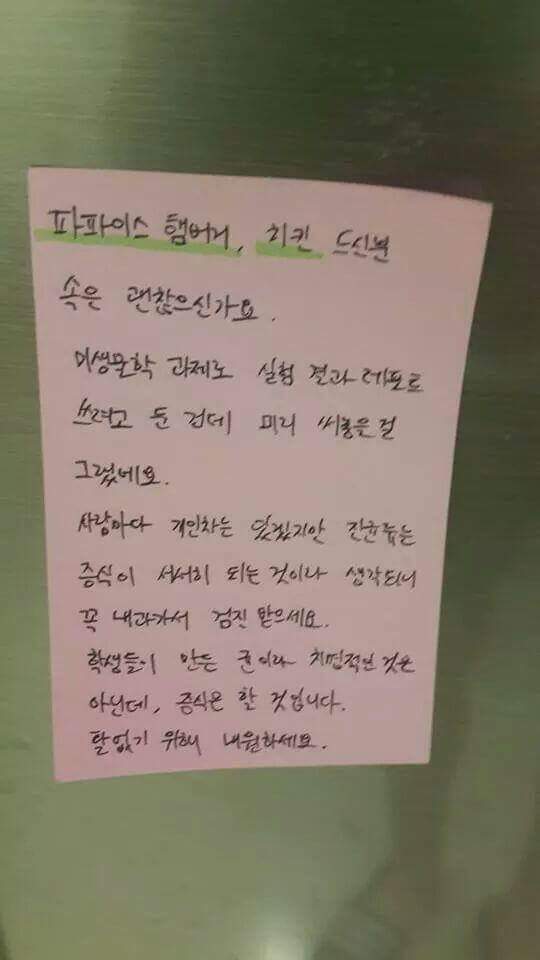 파파이스 햄버거, 치킨 드신분
속은 괜찮으신가요.
미생물학 과제로 실험 결과 레포트
쓰려고 둔 건데 미리 써놓을걸
그랬네요.
사람마다 개인차는 있겠지만 진균류는
증식이 서서히 되는 것이라 생각되니
꼭 내과가서 검진 받으세요.
학생들이 만든 균이라 치명적인 것은
아닌데, 증식은 할 것입니다.
탈없기 위해 내원하세요.